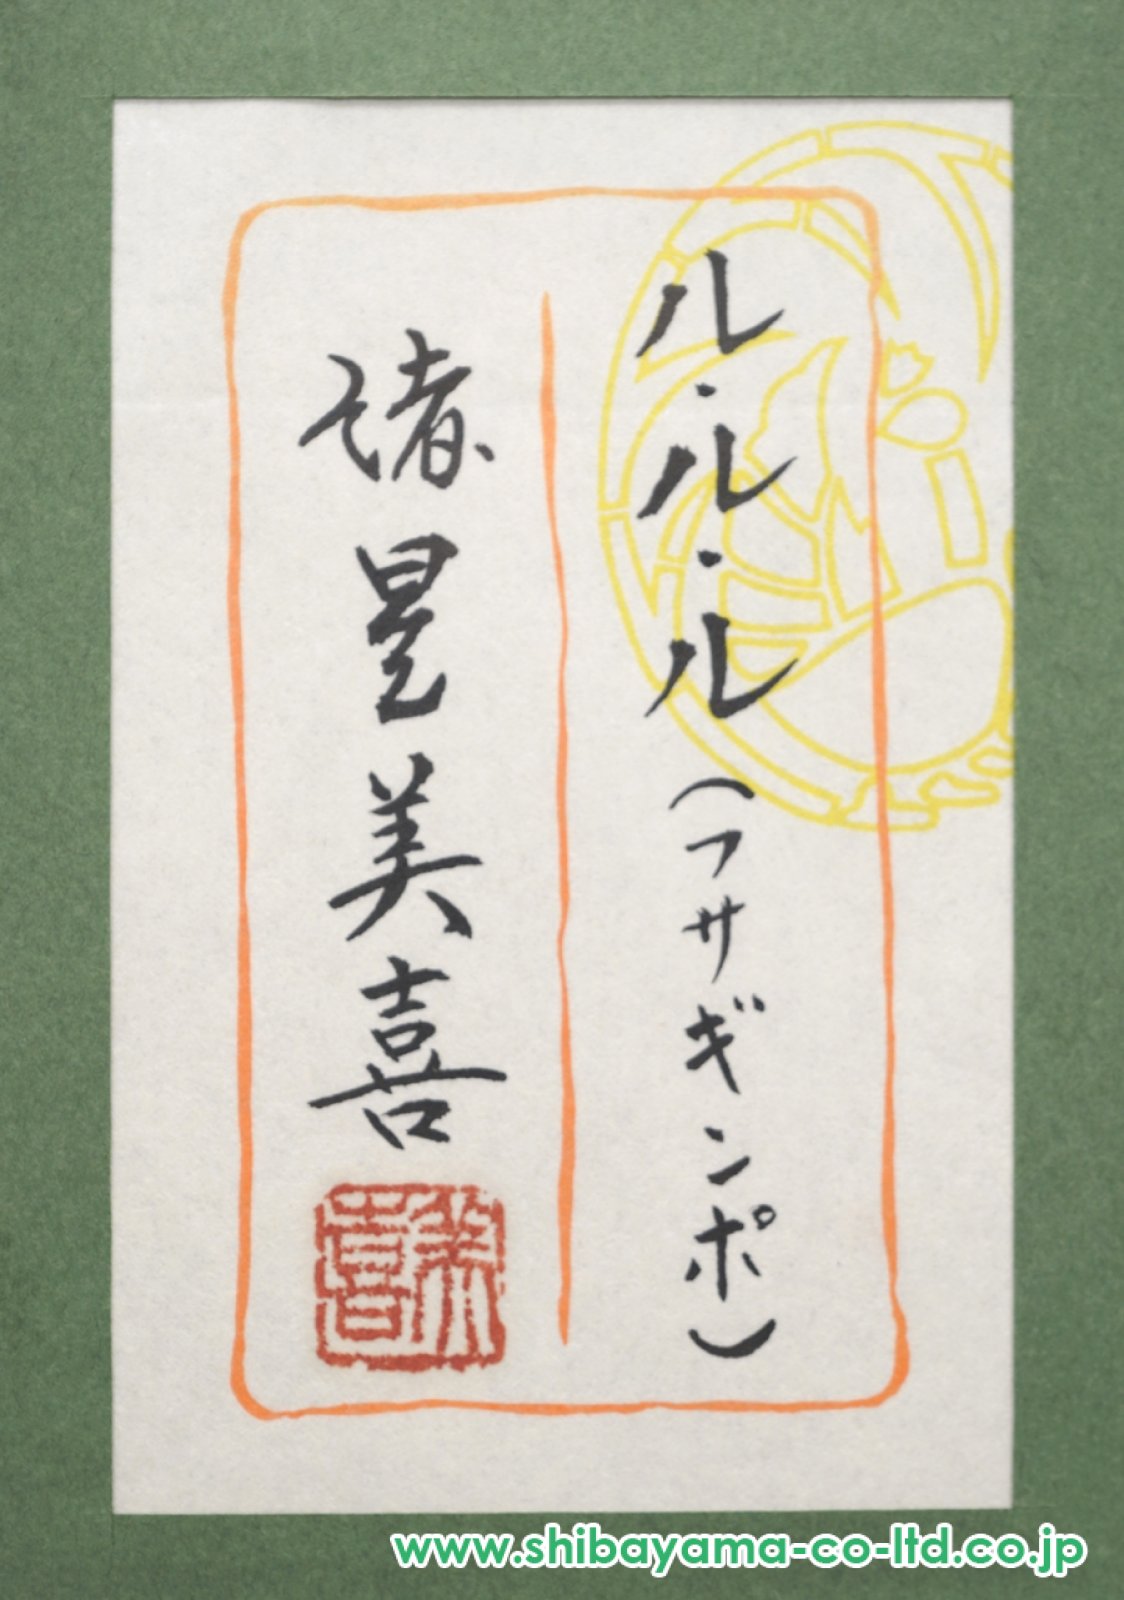 ル・ル・ル(フサギンポ)
諸星美喜
美喜
www.shibayama-co-ltd.co.jp